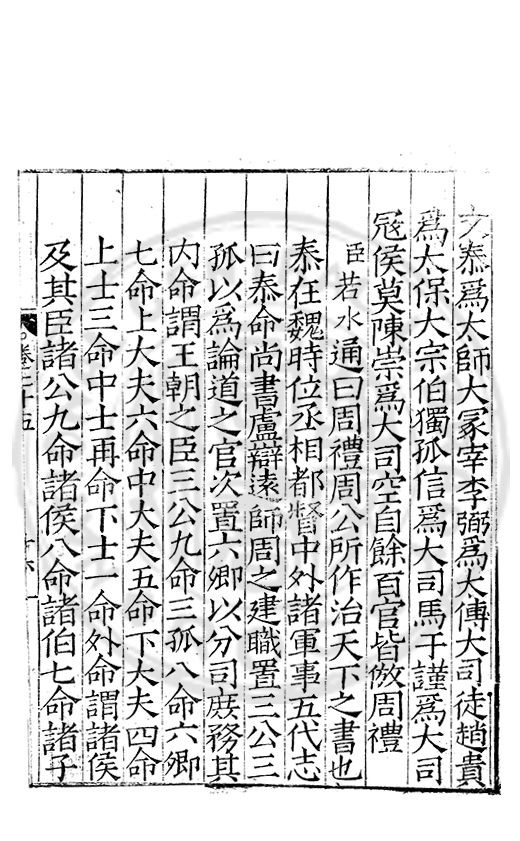 文泰爲太師大冡宰李弼爲太傅大司徒趙貴
爲太保大宗伯獨孤信爲大司馬于謹爲大司
冦侯莫陳崇爲大司空自餘百官皆倣周禮
臣若水通曰周禮周公所作治天下之書也
泰在魏時位丞相都督中外諸軍事五代志
曰泰命尚書盧辯遠師周之建職置三公三
孤以爲論道之官次置六卿以分司庶務其
内命謂王朝之臣三公九命三孤八命六卿
七命上大夫六命中大夫五命下大夫四命
上士三命中士再命下士一命外命謂諸侯
及其臣諸公九命諸侯八命諸伯七命諸子
卷二十五
十六